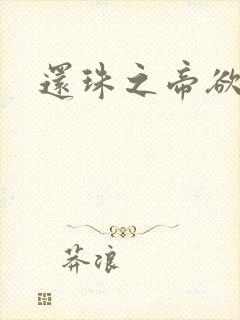 還珠之帝欲
莽浪